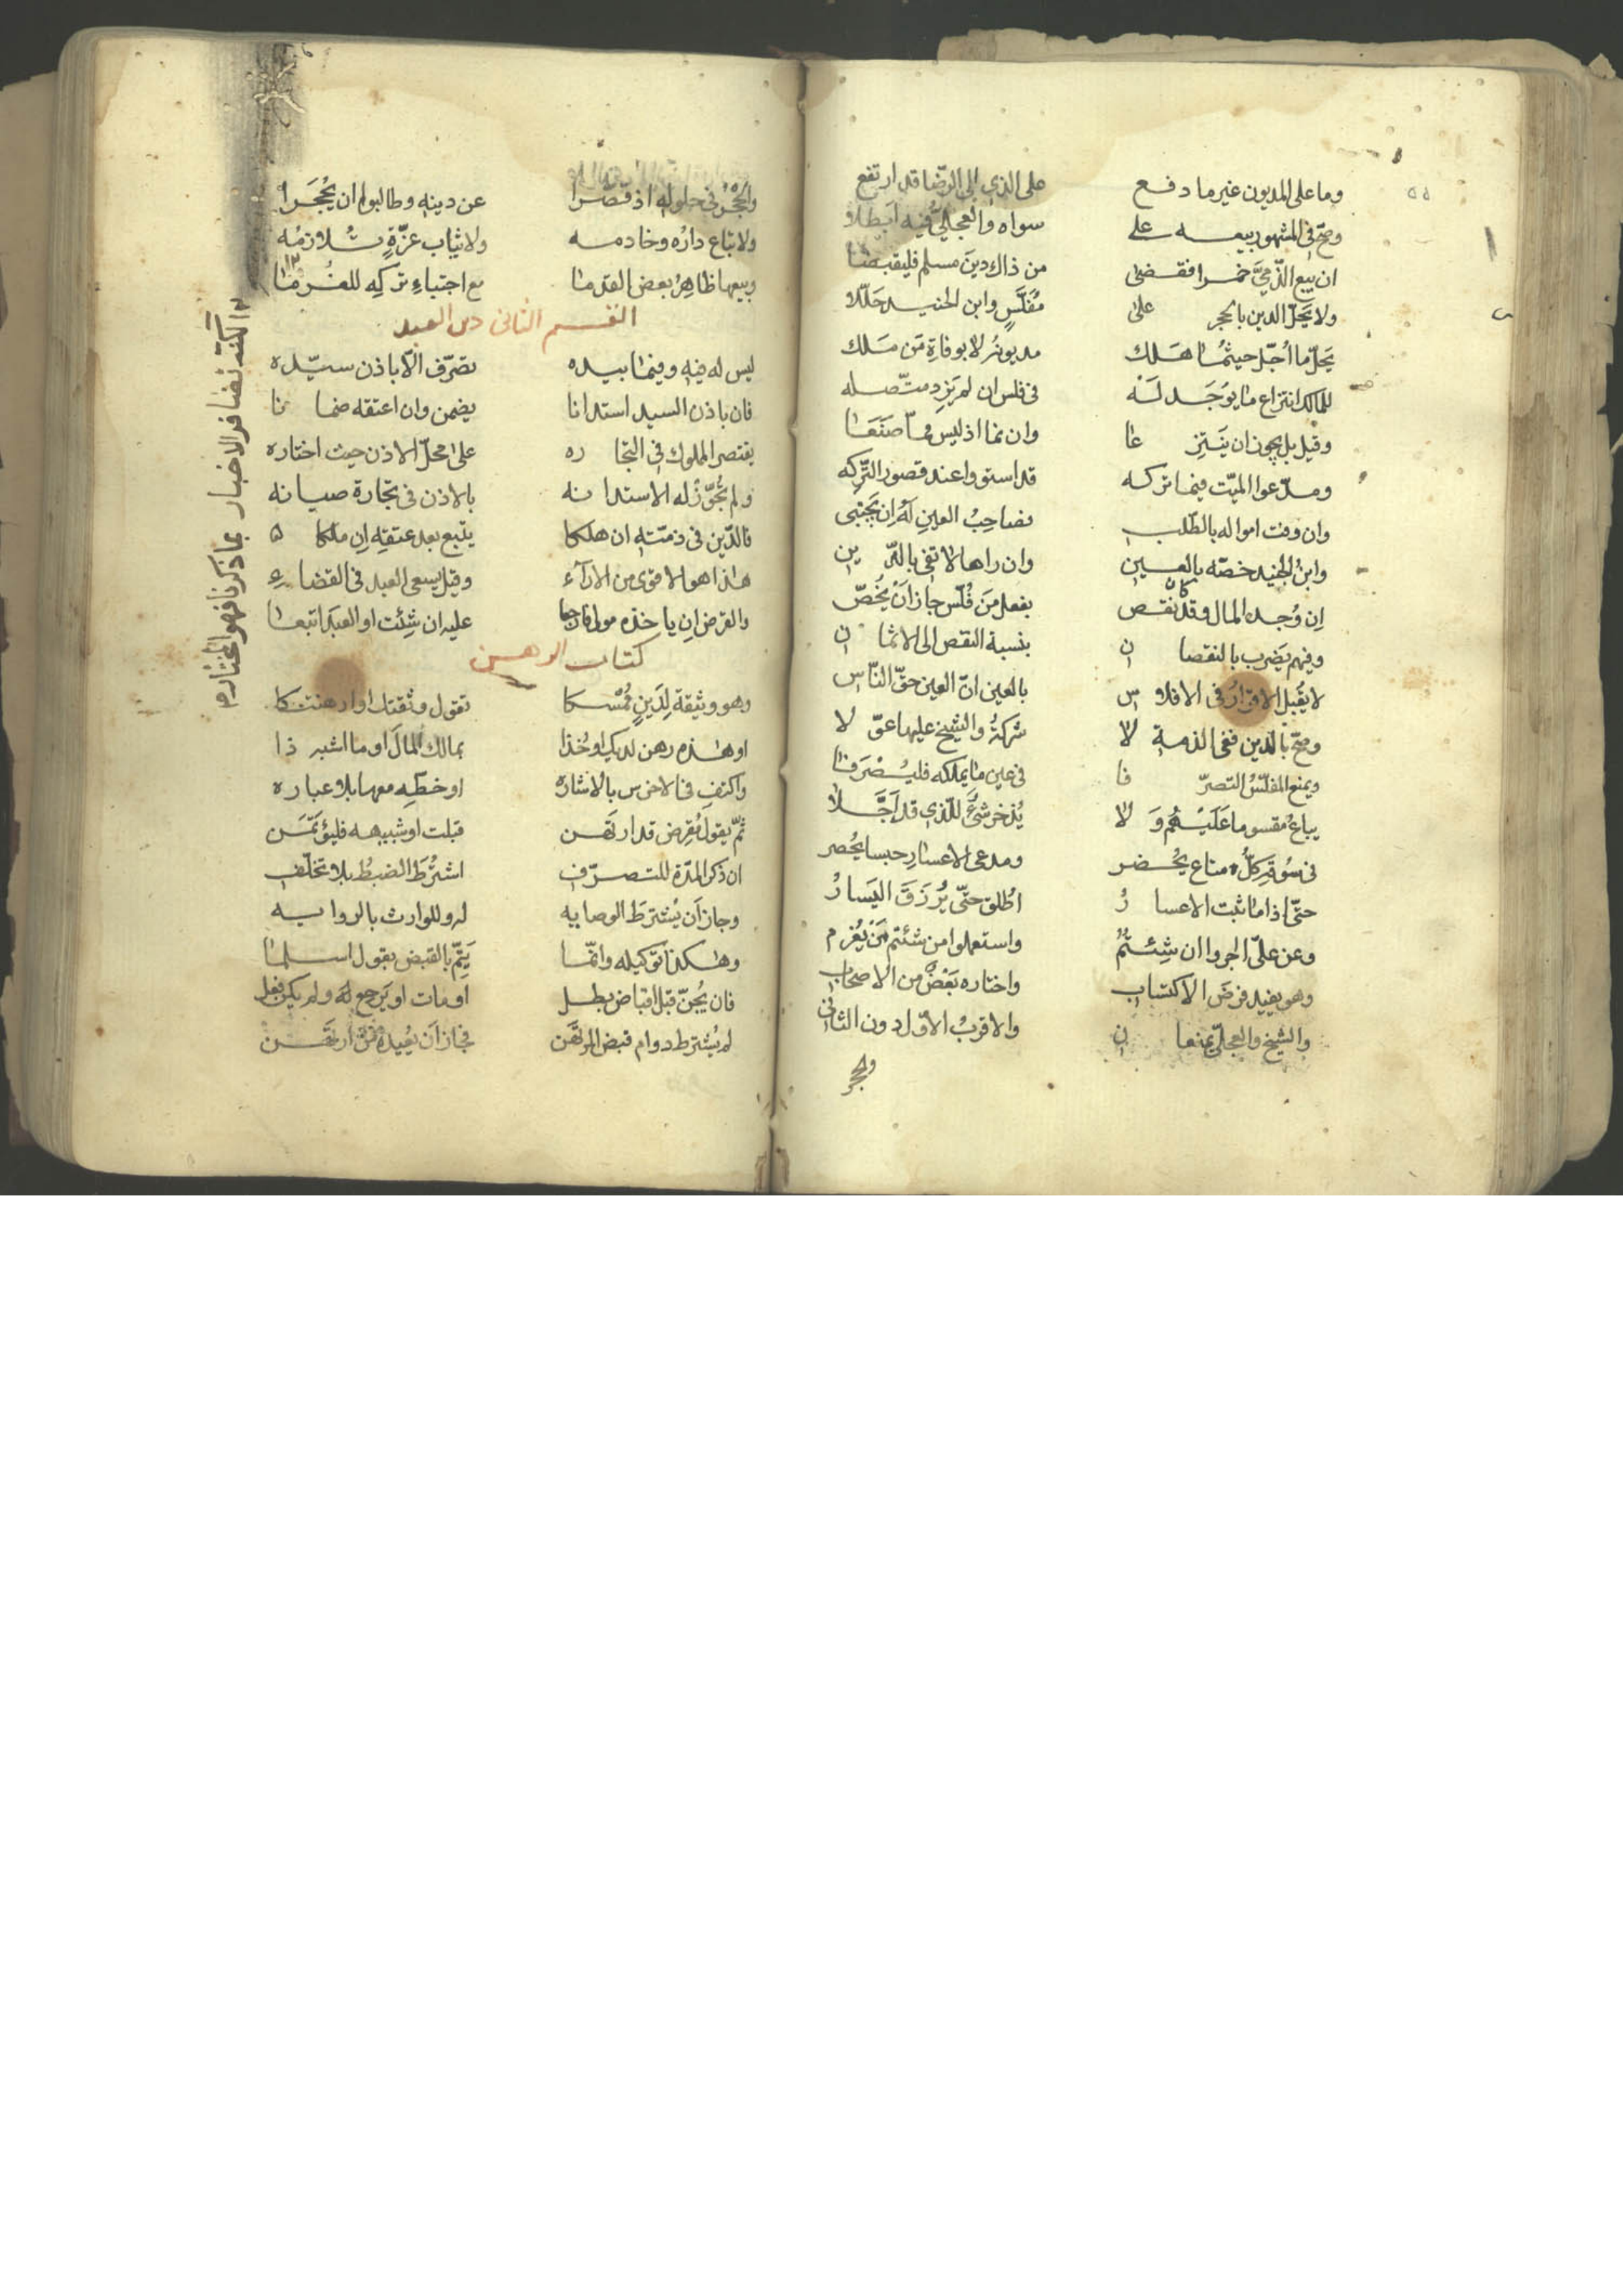 وما على المديون غير ما دفع على الذي الى الرضا قد ارتفع
وصح في المشهور بيعه على سواه والعجلي فيه ابطلا
ان يبع الذمي خمرا فقضى من ذاك دين مسلم فليقبضا
ولا يحل الدين بالحجر على مفلس وابن الجنيد حللا
يحل ما اجل حيثما هلك مديونه لا بوفاة من ملك
للمالك انتزاع ما يوجد له في فلس ان لم يزد متصله
وقيل بل يجوز ان ينتزعا وان نما اذ ليس مما صنعا
ومدعوا الميت فيما تركه قد استووا عند قصور التركه
وان وفت امواله بالطلب فصاحب العين له ان يجتبي
وابن الجنيد خصه بالعين وان راها لا تفي بالدين
ان وجد المال وقد كان نقص بفعل من فلس جاز ان يخص
وفيهم يضرب بالنقصان بنسبة النقص الى الاثمان
لا يقبل الاقرار في الافلاس بالعين ان العين حق الناس
وصح بالدين ففي الذمة لا شركة والشيخ عليها عولا
ويمنع المفلس التصرفا في عين ما يملكه فليصرفا
يباع مقسوما عليهم ولا يذخر شئ للذي قد اجلا
في سوقه كل متاع يحضر ومدعي الاعسار حبسا يحصر
حتى اذا ما ثبت الاعسار اطلق حتى يرزق اليسار
وعن علي اجروا ان شئتم واستعملوا من شئتم من يغرم
وهو يفيد فرض الاكتساب واختاره بعض من الاصحاب
والشيخ والعجلي يمنعان والاقرب الاول دون الثاني
والحجر
والحجر في حلوله اذ قصرا عن دينه وطالبوا ان يحجرا
ولا تباع داره وخادمه ولا ثياب عزة تلازمه
وبيعها ظاهر بعض القدما مع اجتباء تركه للغرما
القسم الثاني دين العبد
ليس له فيه وفيما بيده تصرف الا باذن سيده
فان باذن السيد استدانا يضمن وان اعتقه ضمانا
يقتصر المملوك في التجاره على محل الاذن حيث اختاره
ولم يجوز له الاستدانه بالاذن في تجارة صيانه
فالدين في ذمته ان هلكا يتبع بعد عتقه ان ملكا
هذا هو الاقوى من الارآء وقيل يسعى العبد في القضاء
والقرض ان ياخذه مولى فارجعا عليه ان شئت او العبد اتبعا
كتاب الرهن
وهو وثيقة لدين ممسكا تقول وثقتك او ارهنتكا
او هذه رهن لديك او خذا بمالك المال او ما اشبه ذا
واكتف في الاخرس بالاشاره او خطه معها بلا عباره
ثم يقول مقرض قد ارتهن قبلت او شبيهه فليؤتمن
ان ذكر المدة للتصرف اشترط الضبط بلا تخلف
وجاز ان يشترط الوصايه له وللوارث بالروايه
وهكذا توكيله وانما يتم بالقبض بقول اسلما
فان يجن قبل اقباض بطل او مات او يرجع له ولم يكن فعل
لم يشترط دوام قبض المرتهن فجاز ان يعيده من ارتهن
لكنه تضافر الاخبار بما ذكرنا فهو المختار